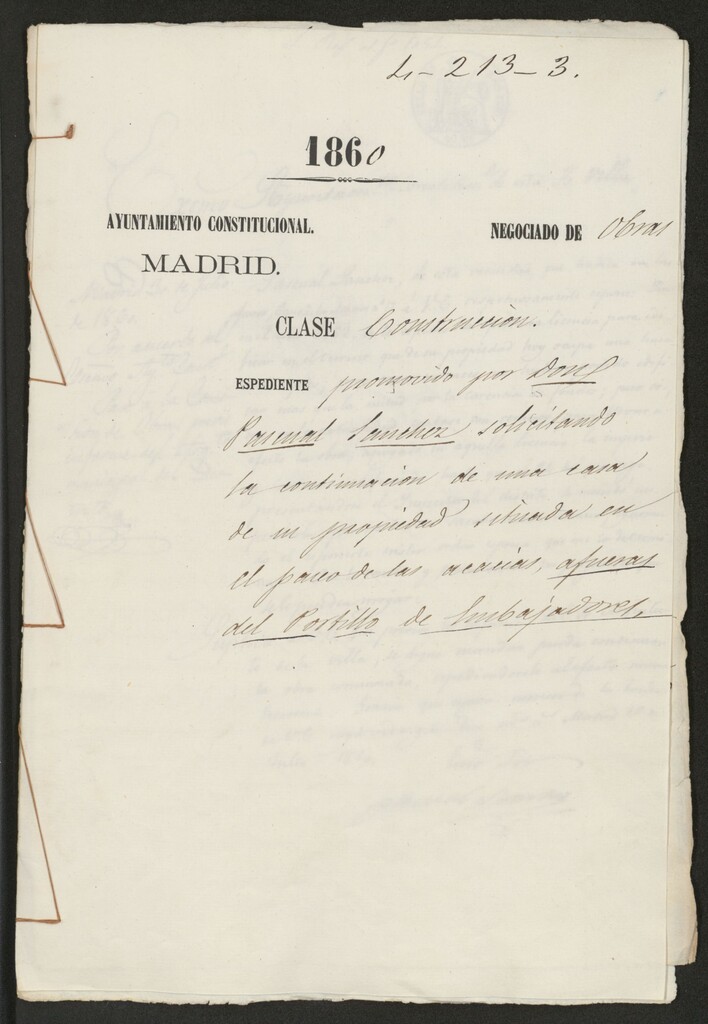 4-213-3.
1860
AYUNTAMIENTO CONSTITUCIONAL.
MADRID.
NEGOCIADO DE Obras
CLASE Construccion.
ESPEDIENTE promovido por Don
Pascual Sanchez solicitando
la continuacion de una casa
de su propiedad situada en
el paseo de las acacias, afueras
del Portillo de Embajadores.